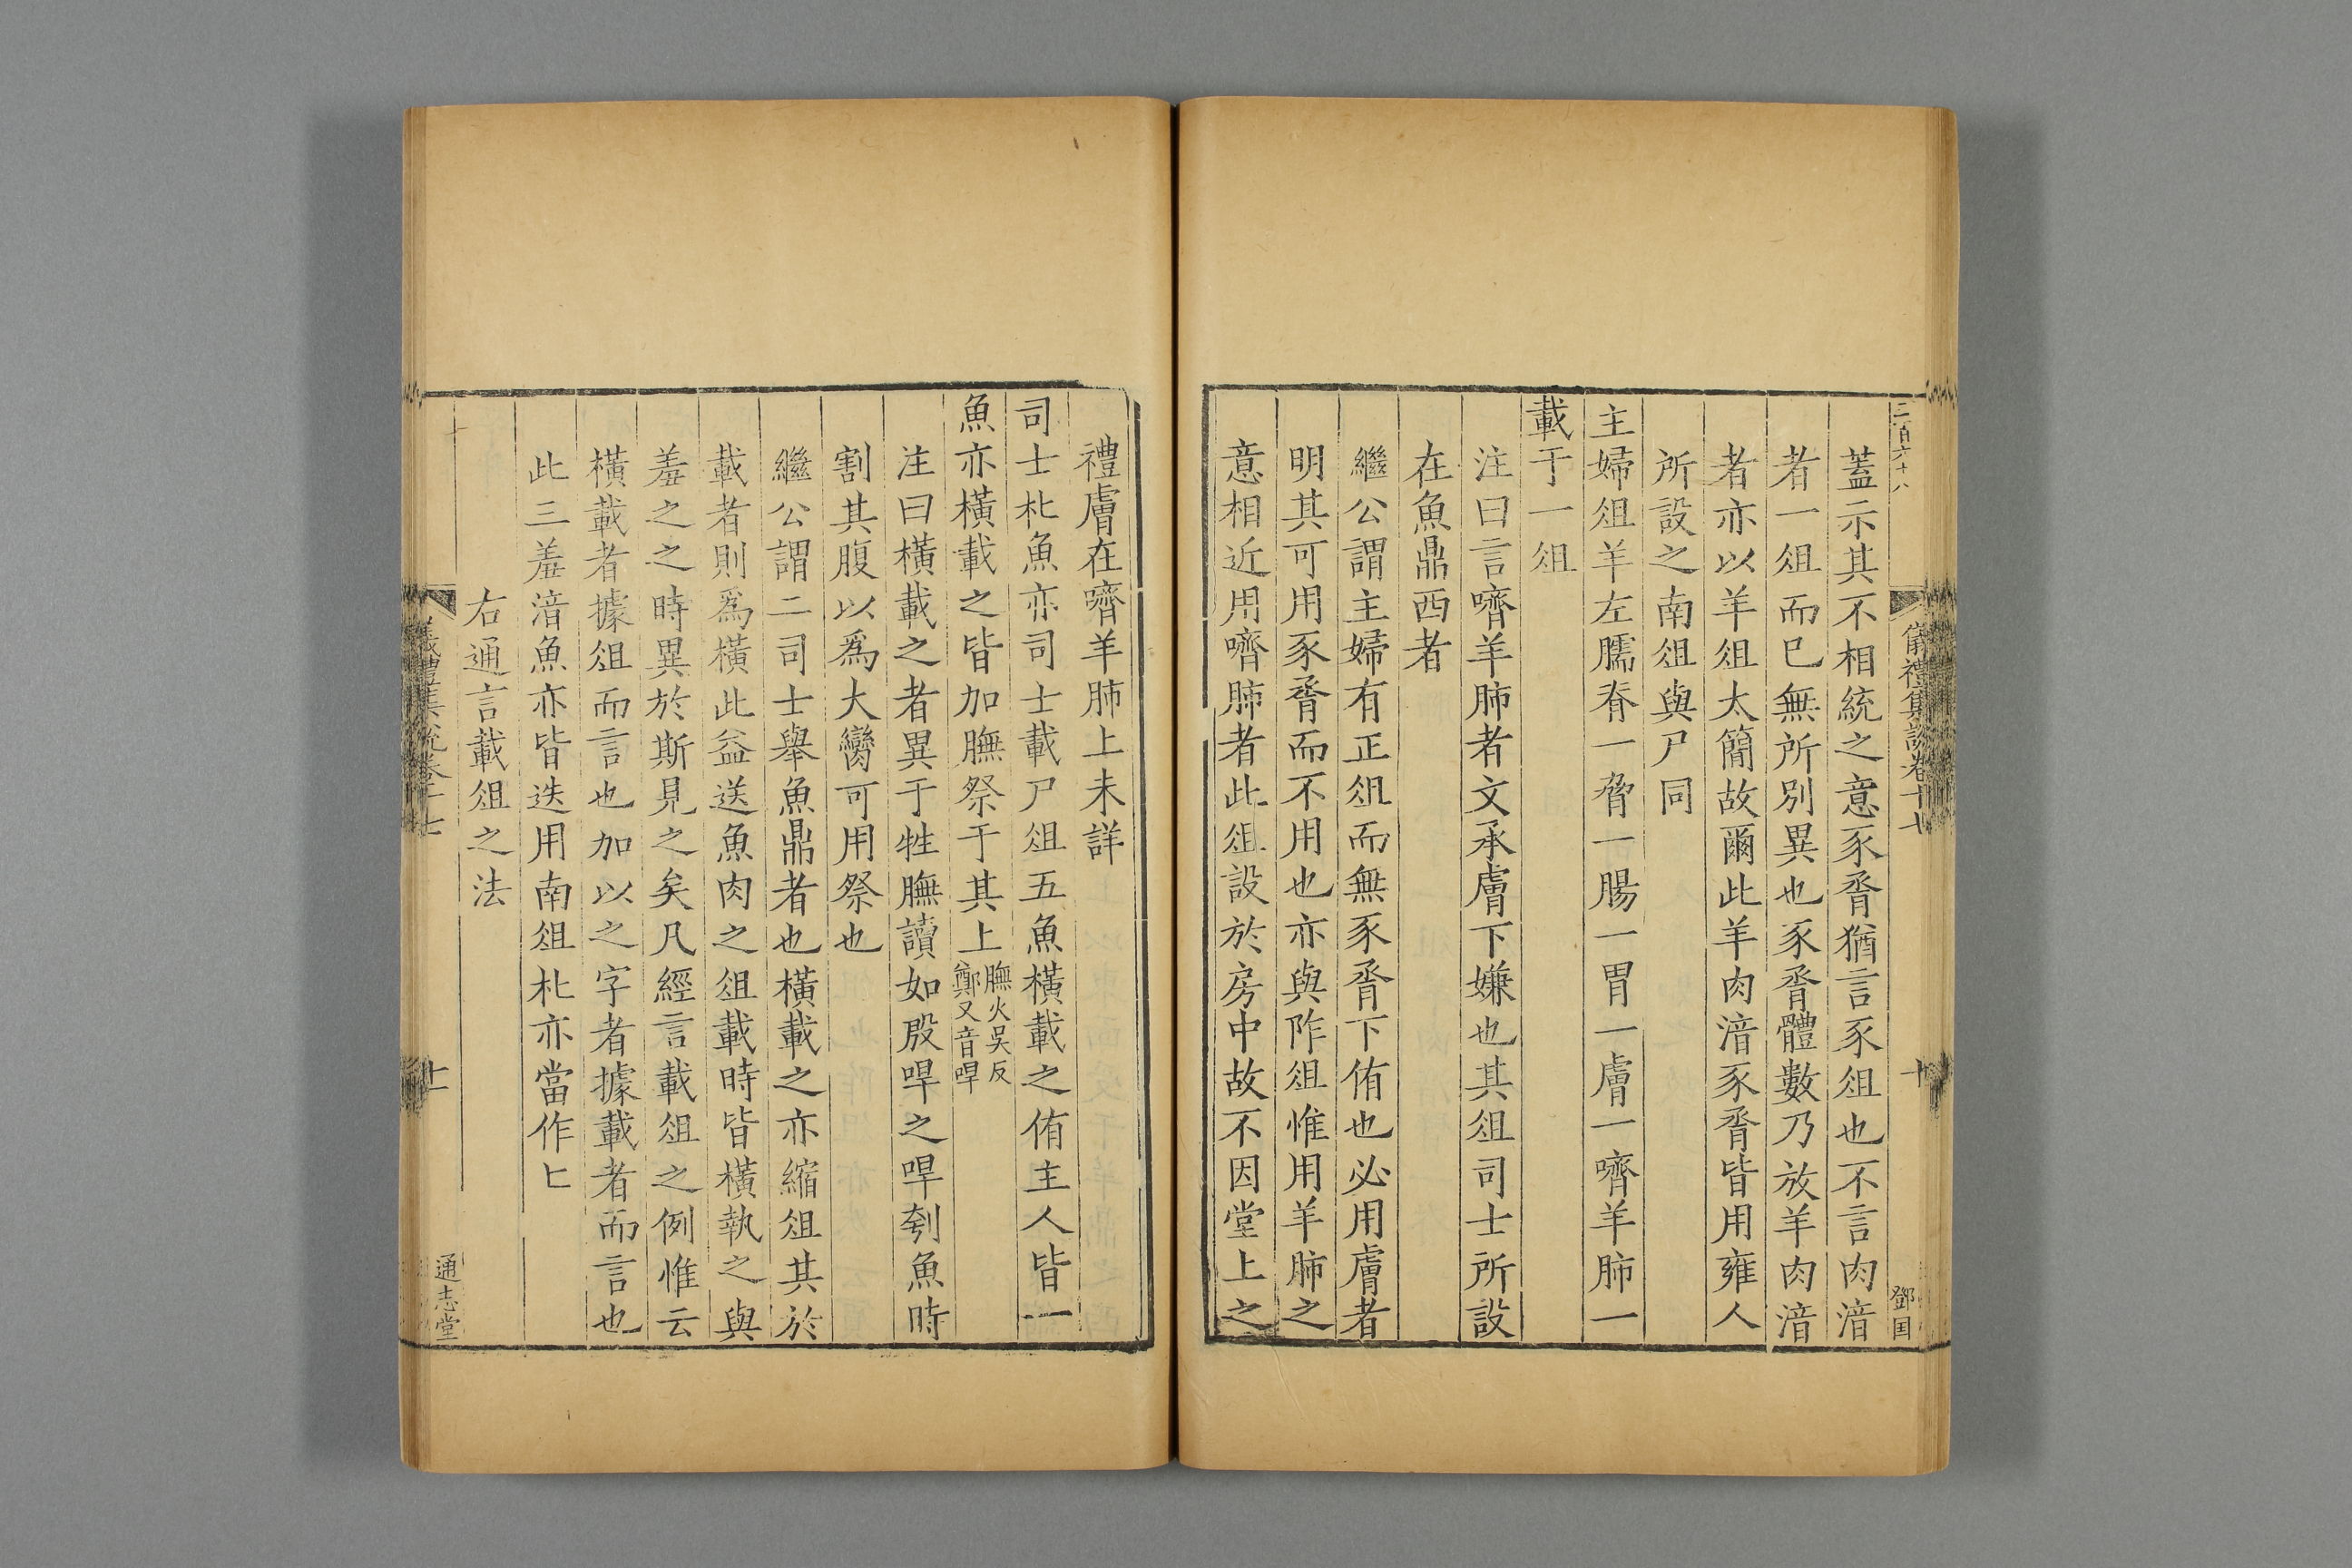 二百六十八
儀禮集說卷十七
十
鄧国
蓋示其不相統之意豕脀猶言豕俎也不言肉湆
者一俎而已無所別異也豕脀體數乃放羊肉湆
者亦以羊俎太簡故爾此羊肉湆豕脀皆用雍人
所設之南俎與尸同
主婦俎羊左臑脊一脅一腸一胃一膚一嚌羊肺一
載于一俎
注曰言嚌羊肺者文承膚下嫌也其俎司士所設
在魚鼎西者
繼公謂主婦有正俎而無豕脀下侑也必用膚者
明其可用豕脀而不用也亦與阼俎惟用羊肺之
意相近用嚌肺者此俎設於房中故不因堂上之
禮膚在嚌羊肺上未詳
司士朼魚亦司士載尸俎五魚橫載之侑主人皆一
魚亦橫載之皆加膴祭于其上膴火吴反鄭又音冔
注曰橫載之者異于牲膴讀如殷冔之冔刳魚時
割其腹以爲大臠可用祭也
繼公謂二司士舉魚鼎者也橫載之亦縮俎其於
載者則爲橫此益送魚肉之俎載時皆橫執之與
羞之之時異於斯見之矣凡經言載俎之例惟云
橫載者據俎而言也加以之字者據載者而言也
此三羞湆魚亦皆迭用南俎朼亦當作匕
右通言載俎之法
儀禮集說卷十七
十一
通志堂